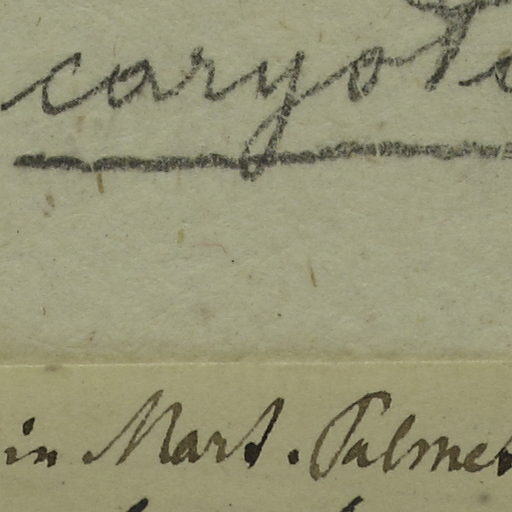 caryot
in Mart. Palmet